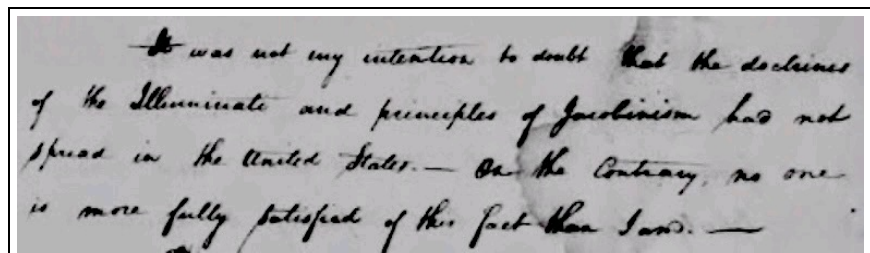 It was not my intention to doubt that the doctrines
of the Illuminati and principles of Jacobinism had not
spread in the United States.— On the Contrary, no one
is more fully satisfied of this fact than I am.—